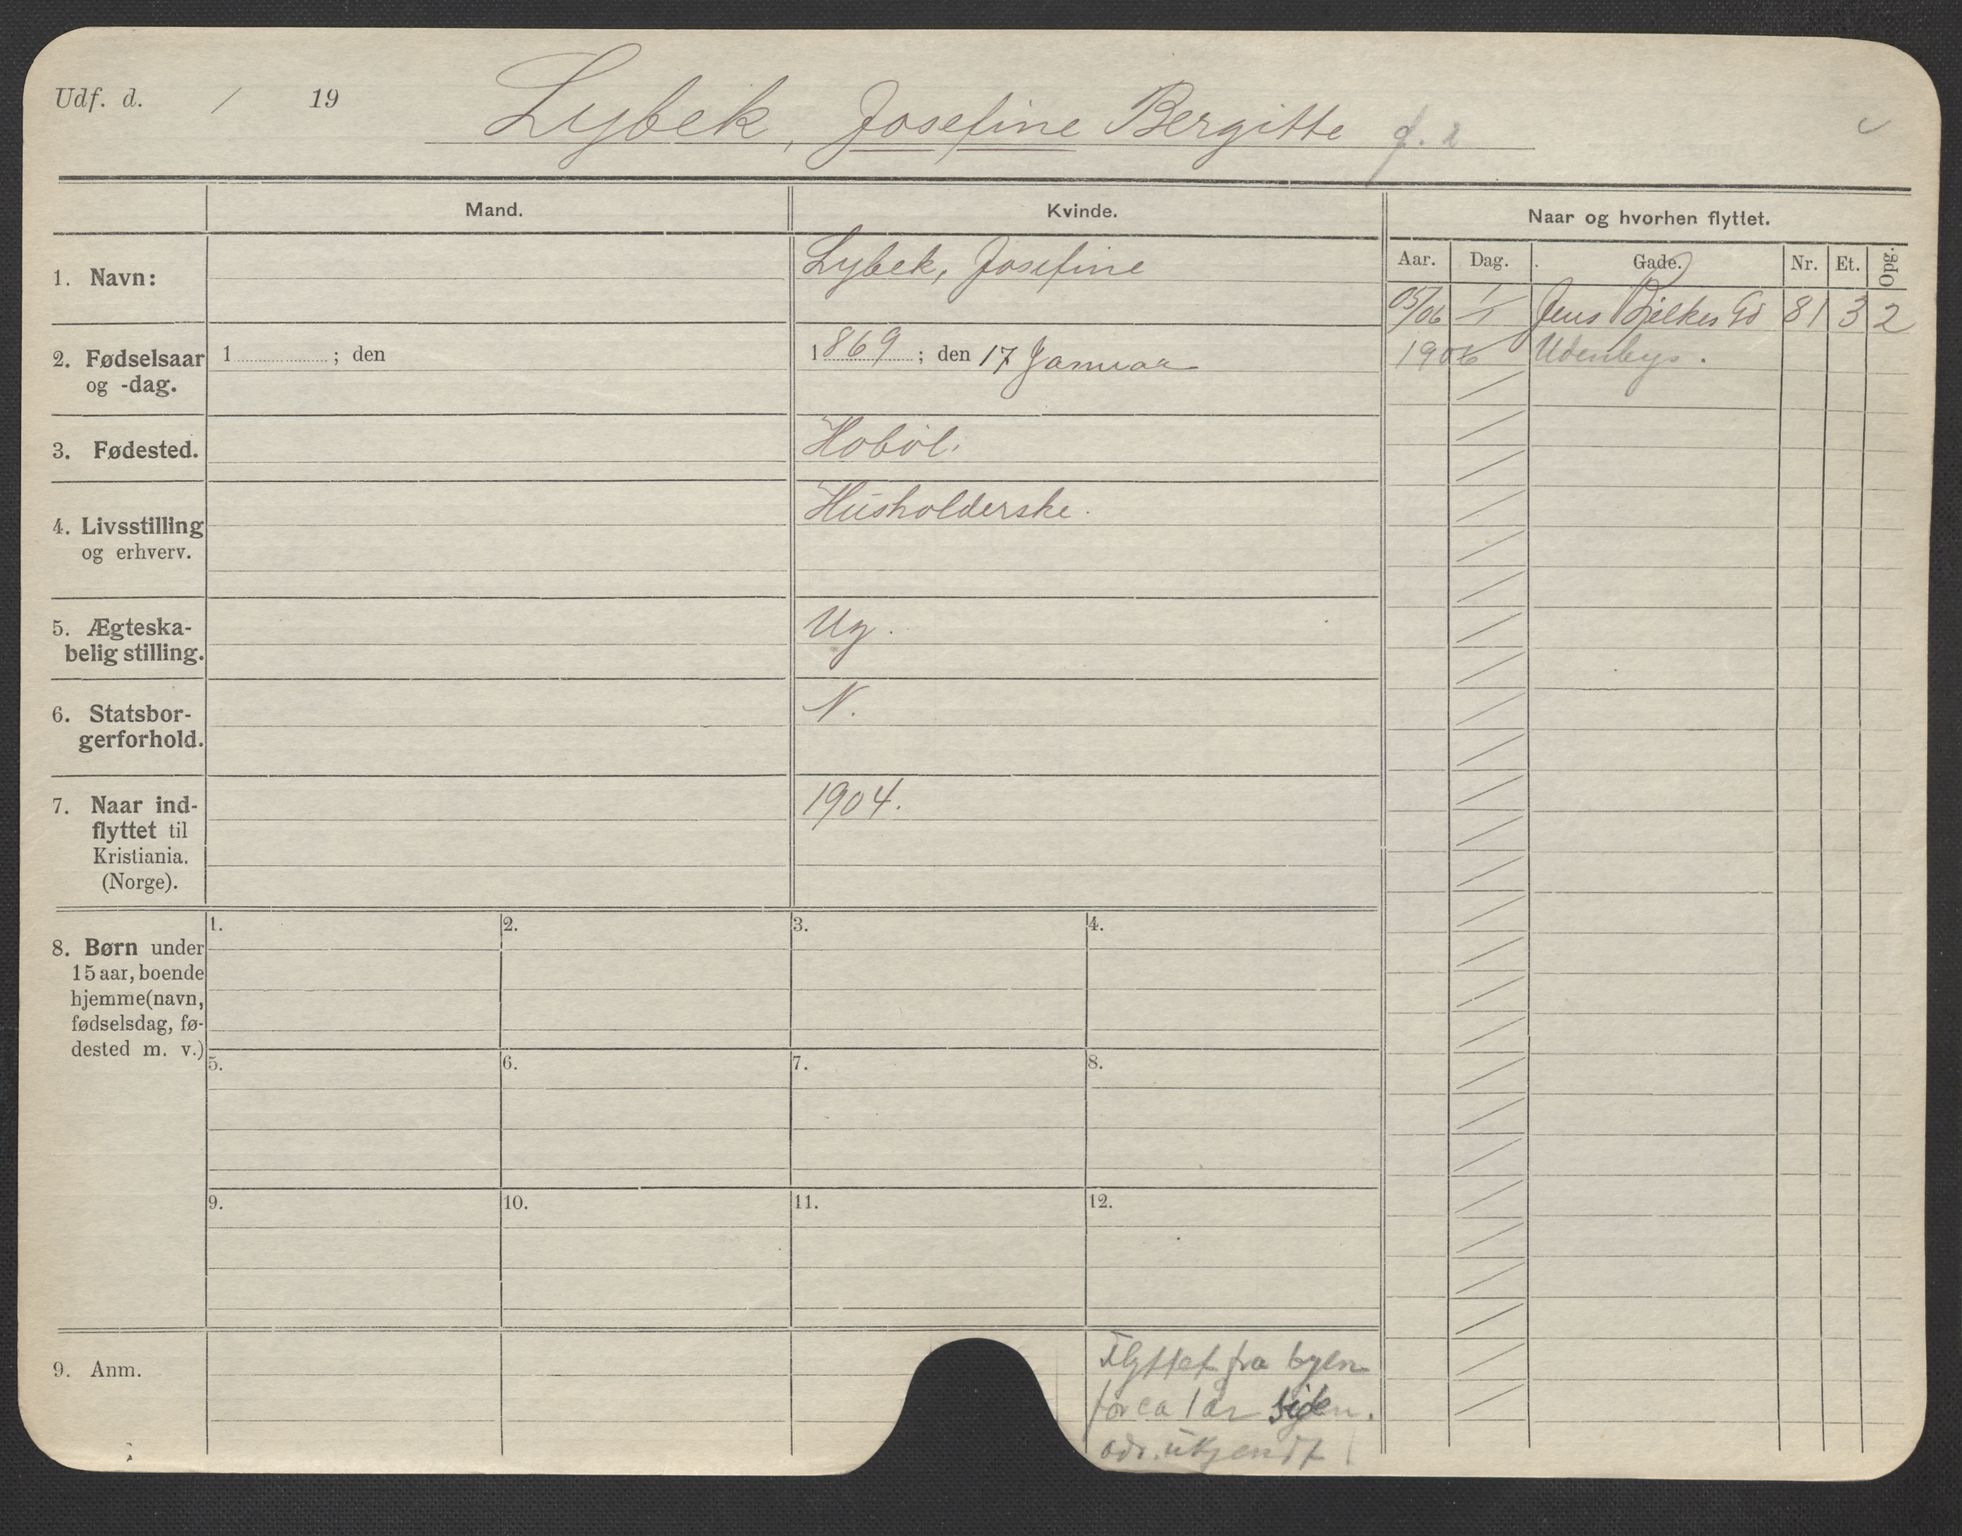 Udf. d. / 19
Lybek, Josefine Bergitte
Mand.
Kvinde.
Naar og hvorhen flyttet.
Aar. Dag. Gade. Nr. Et. Opg.
1. Navn:
Lybek, Josefine
05/06 1/1 Jens Bjelkes Gd 81 3 2
1906 Udenbys.
2. Fødselsaar
og -dag.
1 ; den
1869 ; den 17 Januar
3. Fødested.
Hobøl.
4. Livsstilling
og erhverv.
Husholderske.
5. Ægteska-
belig stilling.
Ug.
6. Statsbor-
gerforhold.
N.
7. Naar ind-
flyttet til
Kristiania.
(Norge).
1904.
8. Børn under
15 aar, boende
hjemme (navn,
fødselsdag, fø-
dested m. v.)
1. 2. 3. 4.
5. 6. 7. 8.
9. 10. 11. 12.
9. Anm.
Flyttet fra byen
for ca 1 aar siden.
adr. ukjendt